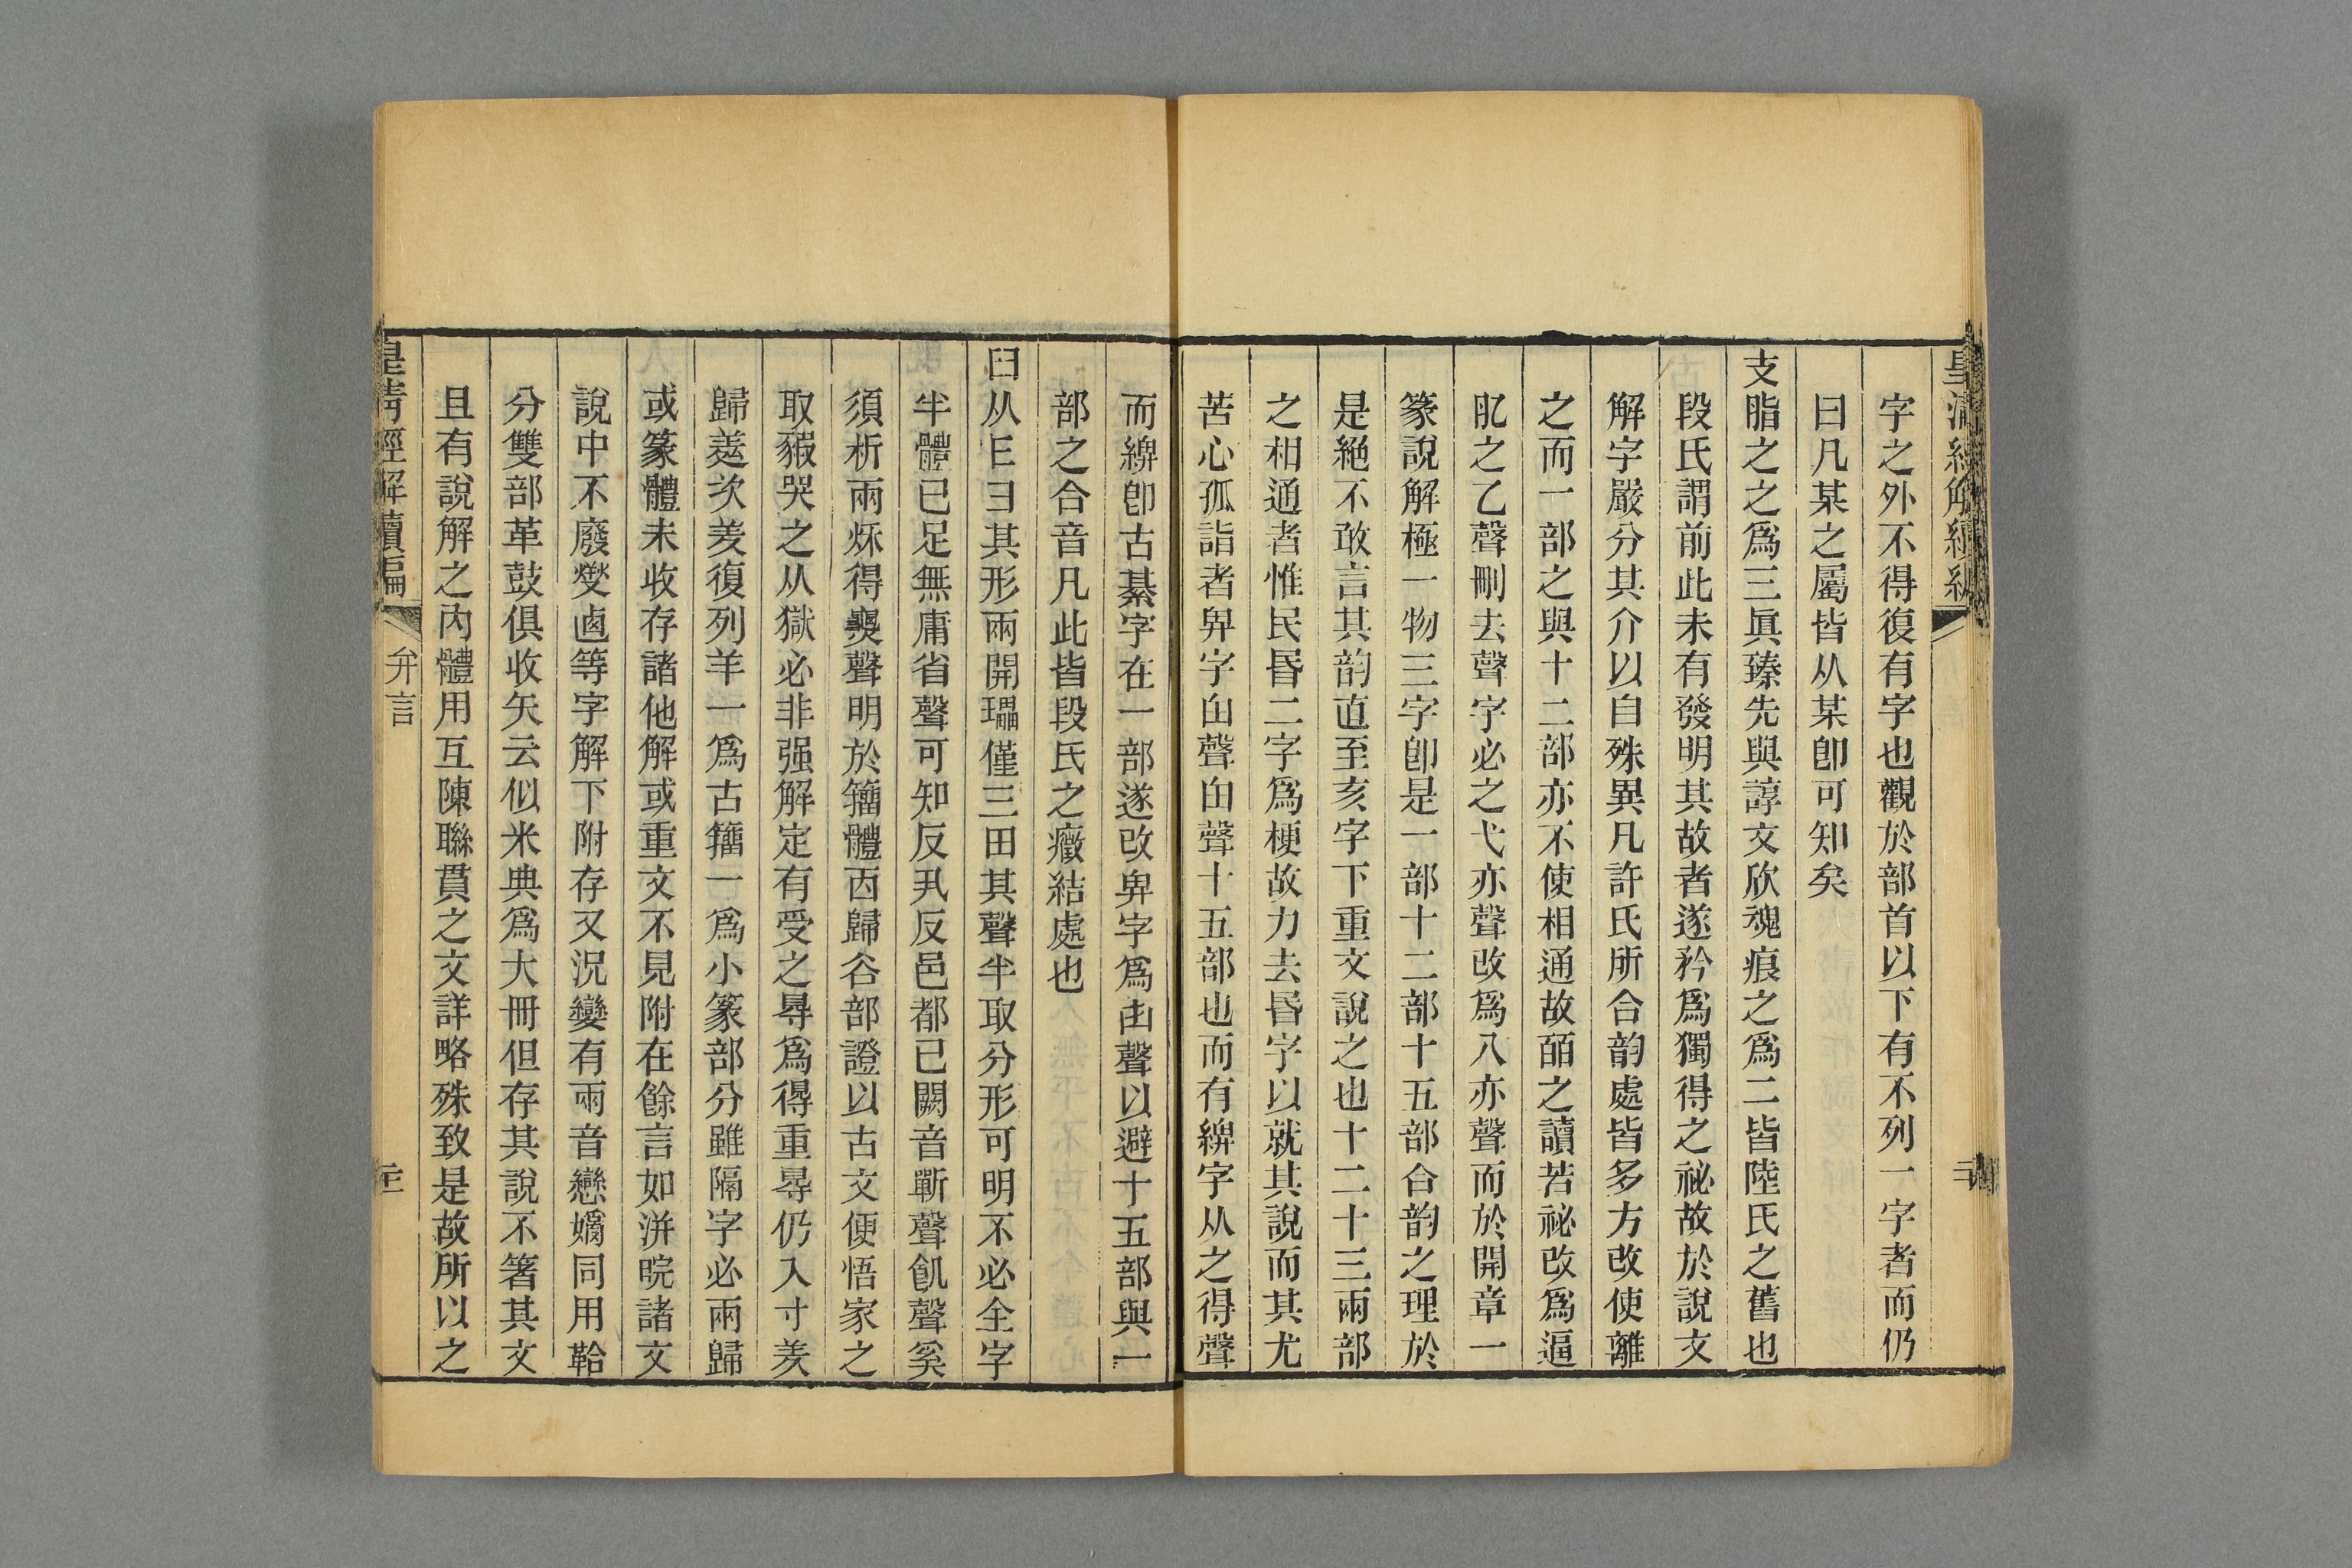 皇清經解續編
字之外不得復有字也觀於部首以下有不列一字者而仍
曰凡某之屬皆从某卽可知矣
支脂之之爲三眞臻先與諄文欣魂痕之爲二皆陸氏之舊也
段氏謂前此未有發明其故者遂矜爲獨得之祕故於說文
解字嚴分其介以自殊異凡許氏所合韵處皆多方改使離
之而一部之與十二部亦不使相通故皕之讀若祕改爲逼
肊之乙聲刪去聲字必之弋亦聲改爲八亦聲而於開章一
篆說解極一物三字卽是一部十二部十五部合韵之理於
是絕不敢言其韵直至亥字下重文說之也十二十三兩部
之相通者惟民昬二字爲梗故力去昬字以就其說而其尤
苦心孤詣者畀字甶聲甶聲十五部也而有綥字从之得聲
而綥卽古綦字在一部遂改畀字爲甶聲以避十五部與一
部之合音凡此皆段氏之癥結處也
𦥑从𠂇彐其形兩開瓃僅三田其聲半取分形可明不必全字
半體已足無庸省聲可知反丮反邑都已闕音斸聲飢聲奚
須析兩烁得㷼聲明於籒體㐁歸谷部證以古文便悟家之
取豭哭之从獄必非强解定有受之㝵爲得重㝵仍入寸羨
歸㳄羨復列羊一爲古籒一爲小篆部分雖隔字必兩歸
或篆體未收存諸他解或重文不見附在餘言如洴晥諸文
說中不廢燮鹵等字解下附存又況孌有兩音戀嬌同用鞈
分雙部革鼓俱收矢云似米典爲大冊但存其說不箸其文
且有說解之內體用互陳聯貫之文詳略殊致是故所以之
皇清經解續編
弁言